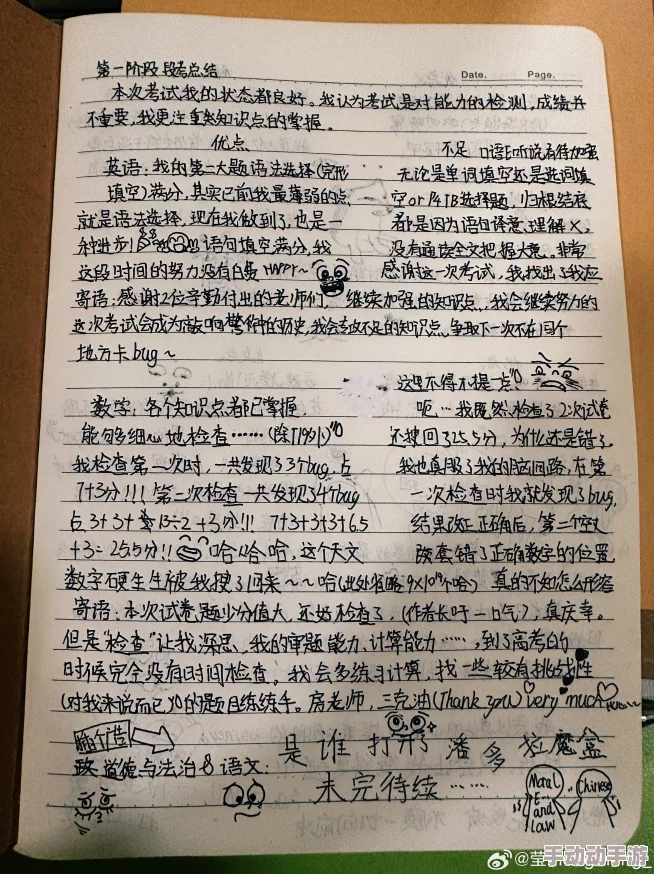 第一阶段段考总结
Date. Page.
本次考试我的状态都良好。我认为考试是对能力的检测,成绩并
不重要,我更注重知识点的掌握。
优点 不足 口语E听说有待加强
英语:我的第二大题语法选择(完形 无论是单词填空还是选词填
填空)满分,其实已前我最薄弱的点, 空or P4 TB选择题,归根结底
就是语法选择,现在我做到了,也是 都是因为语句译意,理解×,
种进步! 语句填空满分,我 没有通读全文把握大意。非常
这段时间的努力没有白费 HAPPY~ 感谢这一次考试,我找出了我应
寄语:感谢2位辛勤付出的老师们 继续加强的知识点,我会继续努力的
这次考试会成为敲响警钟的历史,我会专攻不足的知识点,争取下一次不在同个
地方卡bug~
这里不得不提一点
数学:各个知识点都已掌握. 呃…我既然检查了2次试卷
能够细心地检查……(除T19以) 还搜回了25.5分,为什么还是错了
我检查第一次时,一共发现3个bug,占 我也真服了我的脑回路,在第
7+3分!!!第二次检查一共发现3个bug 一次检查时我就发现了bug,
占3+3+ 13÷2+3分!!! 7+3+3+3+6.5 结果改正正确后,第二个空又
+3=25.5分!! 哈哈哈,这个天文 改套错了正确数字的位置
数字硬生生被我搜了回来~~哈(此处省略9×10¹⁹个哈) 真的不知怎么形容
寄语:本次试卷题少分值大,还好检查了,(作者长吁一口气),真庆幸。
但是"检查"让我深思,我的审题能力、计算能力……,到了高考的
时候完全没有时间检查。我会多练习计算,找一些较有挑战性
(对我来说而已)的题目练练手。房老师,三克油(Thank you) very much
政 道德与法治&语文: 是谁打开了潘多拉魔盒
未完待续……
Moral E and Law
Chinese
@莹
手动动手游